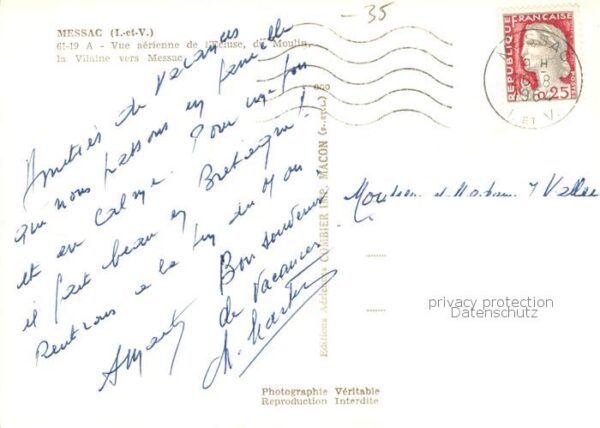 MESSAC (I.-et-V.)
61-19 A - Vue aérienne de l'Ecluse, du Moulin,
la Vilaine vers Messac
-35
REPUBLIQUE FRANÇAISE
0,25
MESSAC
9 H
8
1962
I. ET V.
Amitiés de vacances
que nous passons en famille
et au calme. Pour une fois
il fait beau en Bretagne!
Rentrons à la fin du mois
Bon souvenir
de vacances
Editions Aériennes COMBIER IMP. MACON (S.-et-L.)
Monsieur et Madame Vallée
privacy protection
Datenschutz
Photographie Véritable
Reproduction Interdite